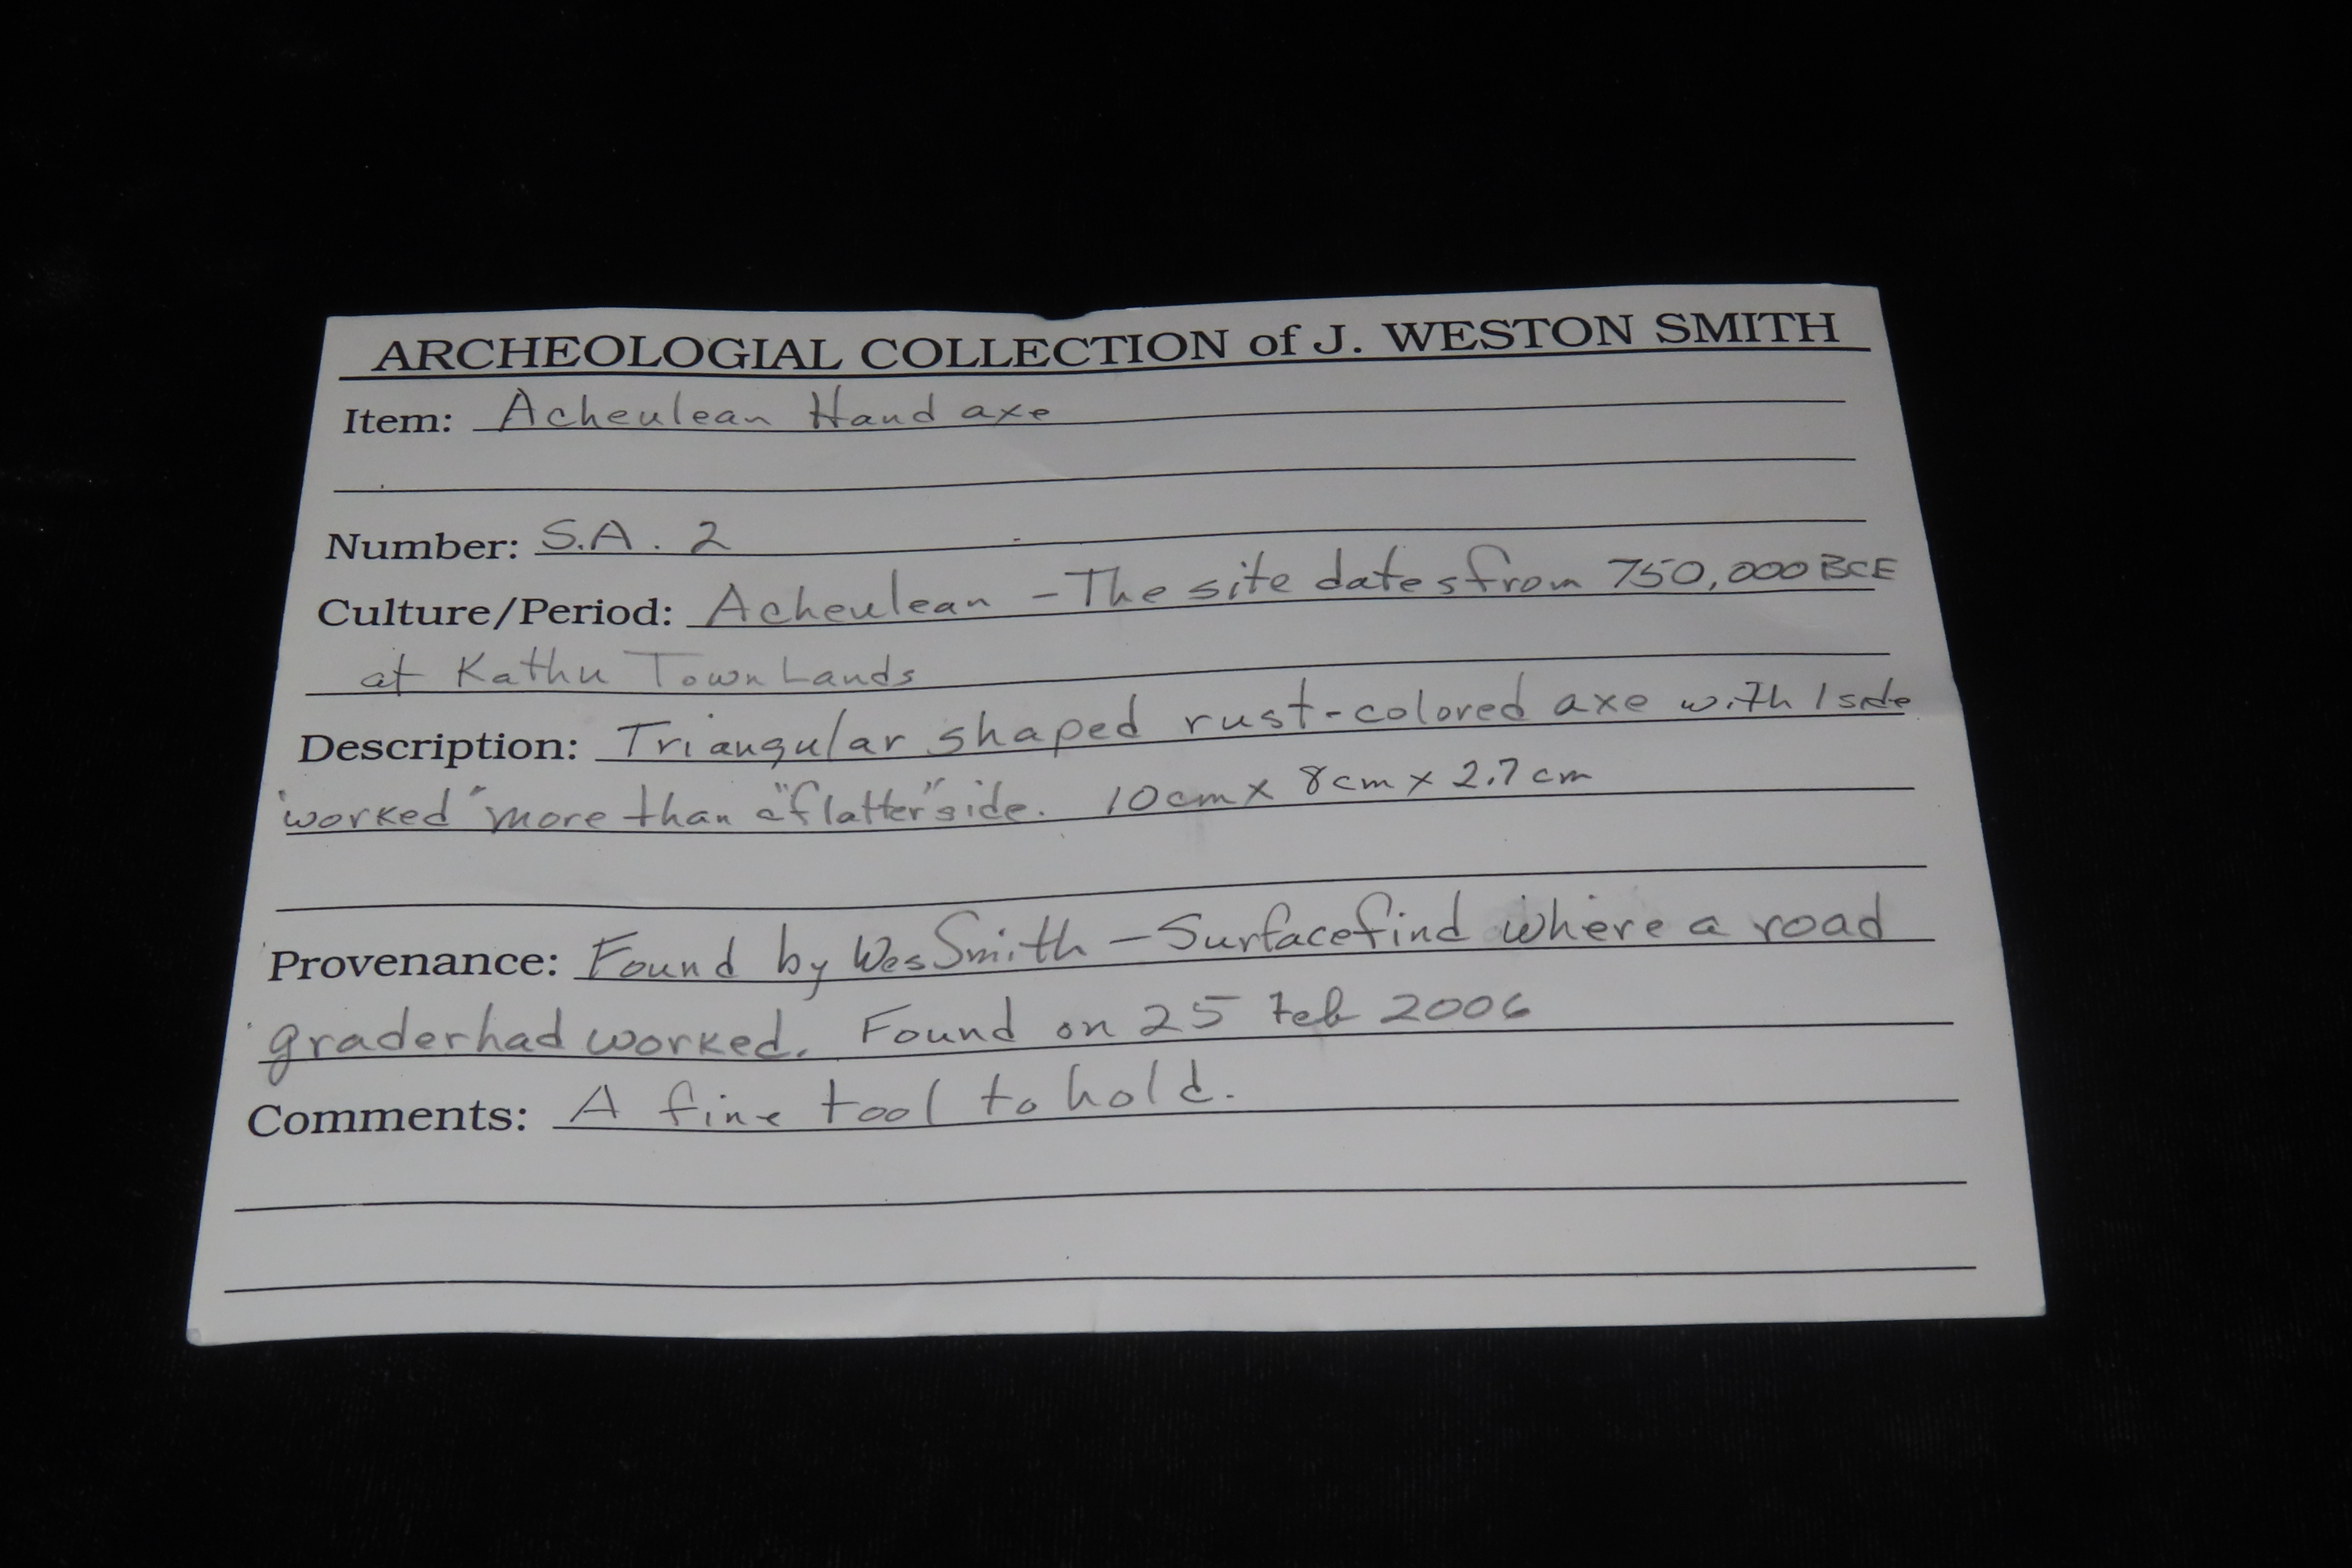 ARCHEOLOGIAL COLLECTION of J. WESTON SMITH
Item: Acheulean Hand axe
Number: S.A. 2
Culture/Period: Acheulean - The site dates from 750,000 BCE
at Kathu Town Lands
Description: Triangular shaped rust-colored axe with 1 side
"worked" more than a "flatter" side. 10cm x 8cm x 2.7cm
Provenance: Found by Wes Smith - Surface find where a road
grader had worked. Found on 25 Feb 2006
Comments: A fine tool to hold.